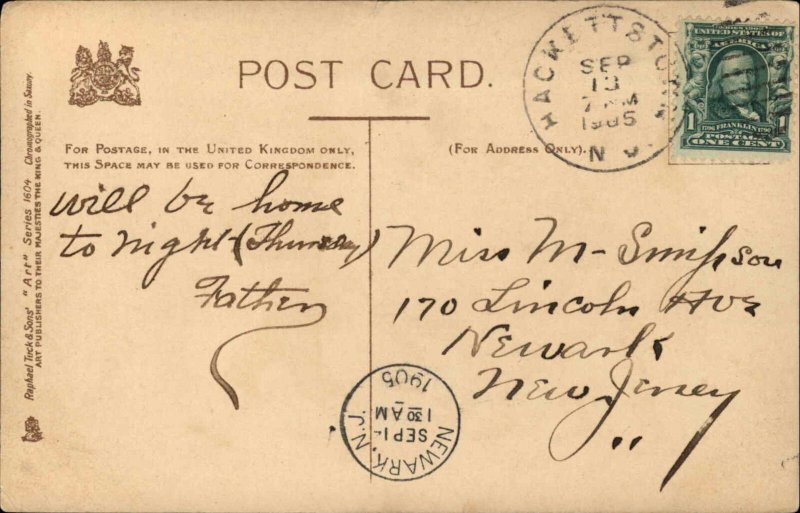 POST CARD.
FOR POSTAGE, IN THE UNITED KINGDOM ONLY,
THIS SPACE MAY BE USED FOR CORRESPONDENCE.
(FOR ADDRESS ONLY).
Raphael Tuck & Sons' "Art" Series 1604 Chromographed in Saxony.
ART PUBLISHERS TO THEIR MAJESTIES THE KING & QUEEN.
HACKETTSTOWN
SEP
13
7 PM
1905
N.J.
SERIES 1902
UNITED STATES OF
AMERICA
1706 FRANKLIN 1790
1 POSTAGE 1
ONE CENT
will be home
to night (Thursday)
Father
Miss M- Simpson
170 Lincoln Ave
Newark
New Jersey
NEWARK, N.J.
SEP 1
1 30 AM
1905